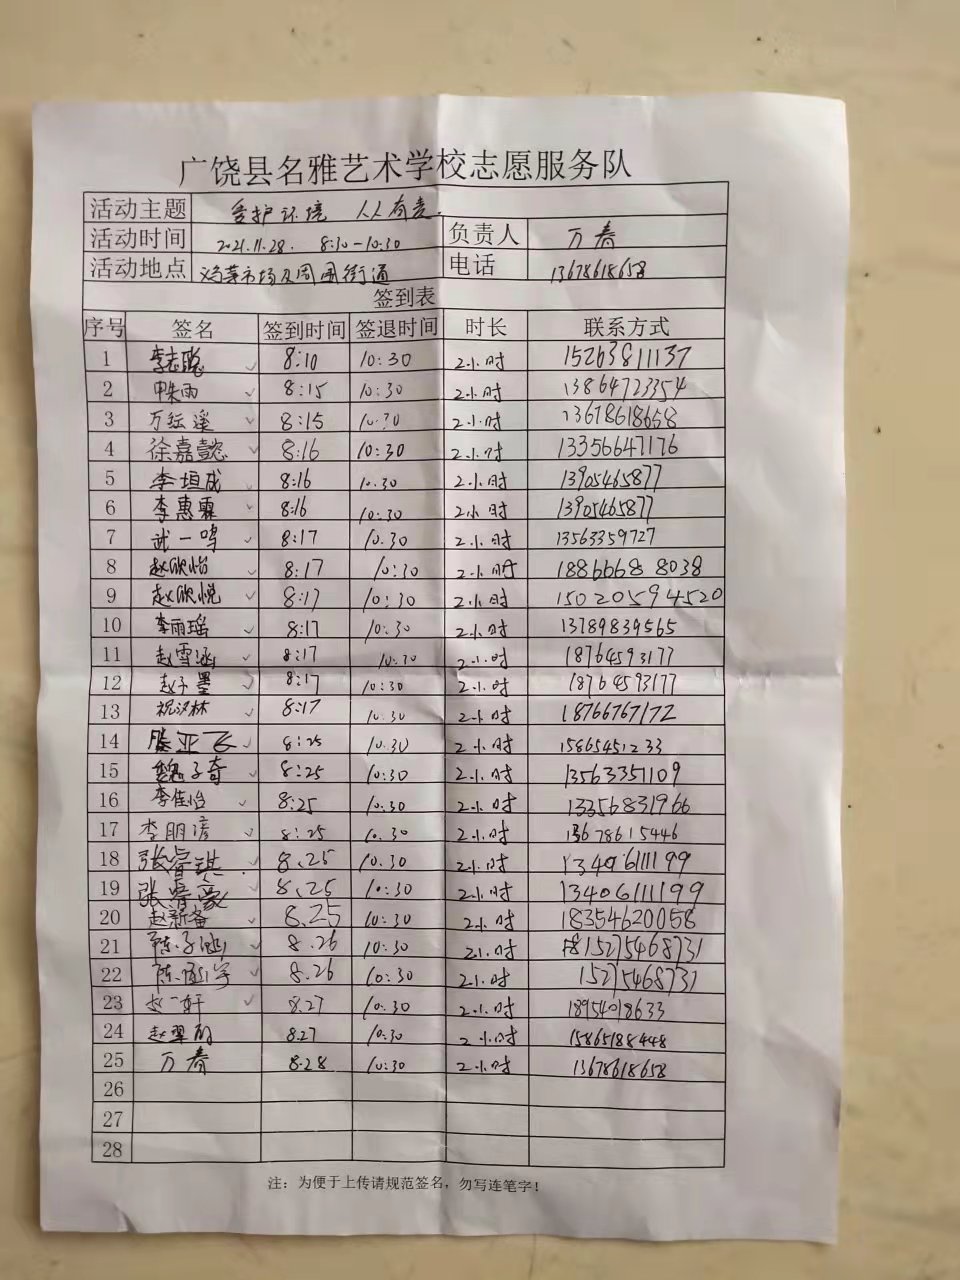 广饶县名雅艺术学校志愿服务队
活动主题 爱护环境 人人有责.
活动时间 2021.11.28. 8:30-10:30 负责人 万春
活动地点 鸡菜市场及周围街道 电话 13678618658
签到表
序号 签名 签到时间 签退时间 时长 联系方式
1 李志聪 ✓ 8:10 10:30 2小时 15263811137
2 申朱雨 ✓ 8:15 10:30 2小时 13864723354
3 万纭溪 ✓ 8:15 10.30 2小时 13678618658
4 徐嘉懿 ✓ 8:16 10:30 2小时 13356647176
5 李垣成 ✓ 8:16 10.30 2小时 13905465877
6 李惠霖 ✓ 8:16 10:30 2小时 13905465877
7 武一鸣 ✓ 8:17 10.30 2小时 13563359727
8 赵欣怡 ✓ 8:17 10:30 2小时 18866688038
9 赵欣悦 ✓ 8:17 10:30 2小时 15020594520
10 李雨瑶 ✓ 8:17 10:30 2小时 13789839565
11 赵雪涵 ✓ 8:17 10.30 2小时 18764593177
12 赵子墨 ✓ 8:17 10:30 2小时 18764593177
13 祝汉林 ✓ 8:17 10.30 2小时 18766767172
14 滕亚飞 ✓ 8:25 10.30 2小时 15865451233
15 魏子奇 ✓ 8:25 10:30 2小时 13563351109
16 李佳怡 ✓ 8:25 10:30 2小时 13356831966
17 李朋谚 ✓ 8:25 10.30 2小时 13678615446
18 张睿琪 ✓ 8.25 10.30 2小时 13406111199
19 张睿豪 ✓ 8.25 10:30 2小时 13406111199
20 赵新备 ✓ 8.25 10:30 2小时 18354620058
21 陈子涵 ✓ 8.26 10:30 2小时 15275468731
22 陈涵宇 ✓ 8.26 10:30 2小时 15275468731
23 赵一轩 ✓ 8.27 10:30 2小时 18954018633
24 赵翠 8.27 10:30 2小时 15865188448
25 万春 8.28 10:30 2小时 13678618658
26
27
28
注：为便于上传请规范签名，勿写连笔字！